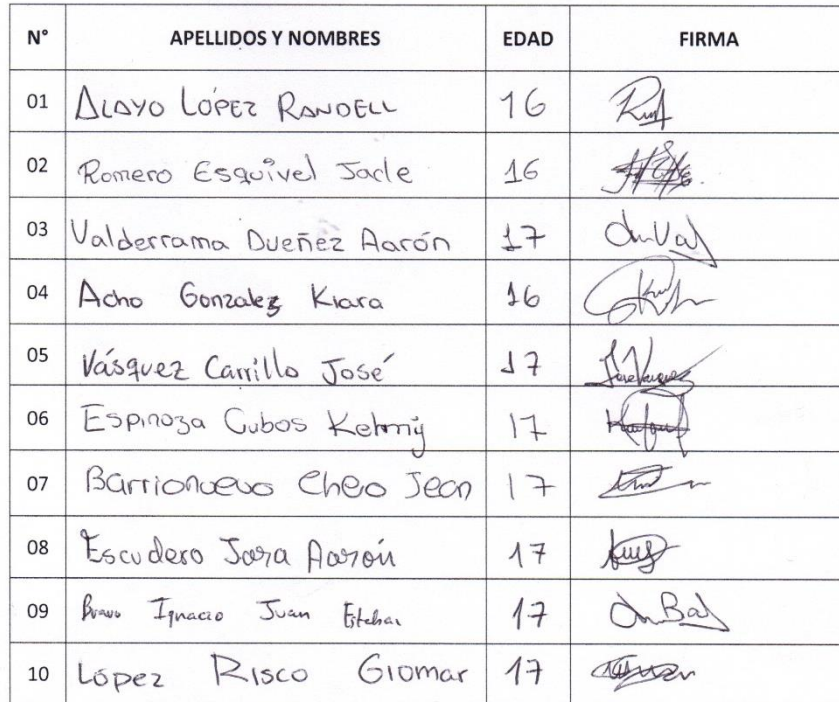 N° APELLIDOS Y NOMBRES EDAD FIRMA
01 ALAYO LÓPEZ RANDELL 16
02 Romero Esquivel Jade 16
03 Valderrama Dueñez Aarón 17
04 Acho Gonzalez Kiara 16
05 Vásquez Carrillo José 17 José Vasquez
06 Espinoza Cubos 17
07 Barrionuevo Cheo Jean 17
08 Escudero Jara Aarón 17
09 Bravo Ignacio Juan Esteban 17
10 López Risco Giomar 17